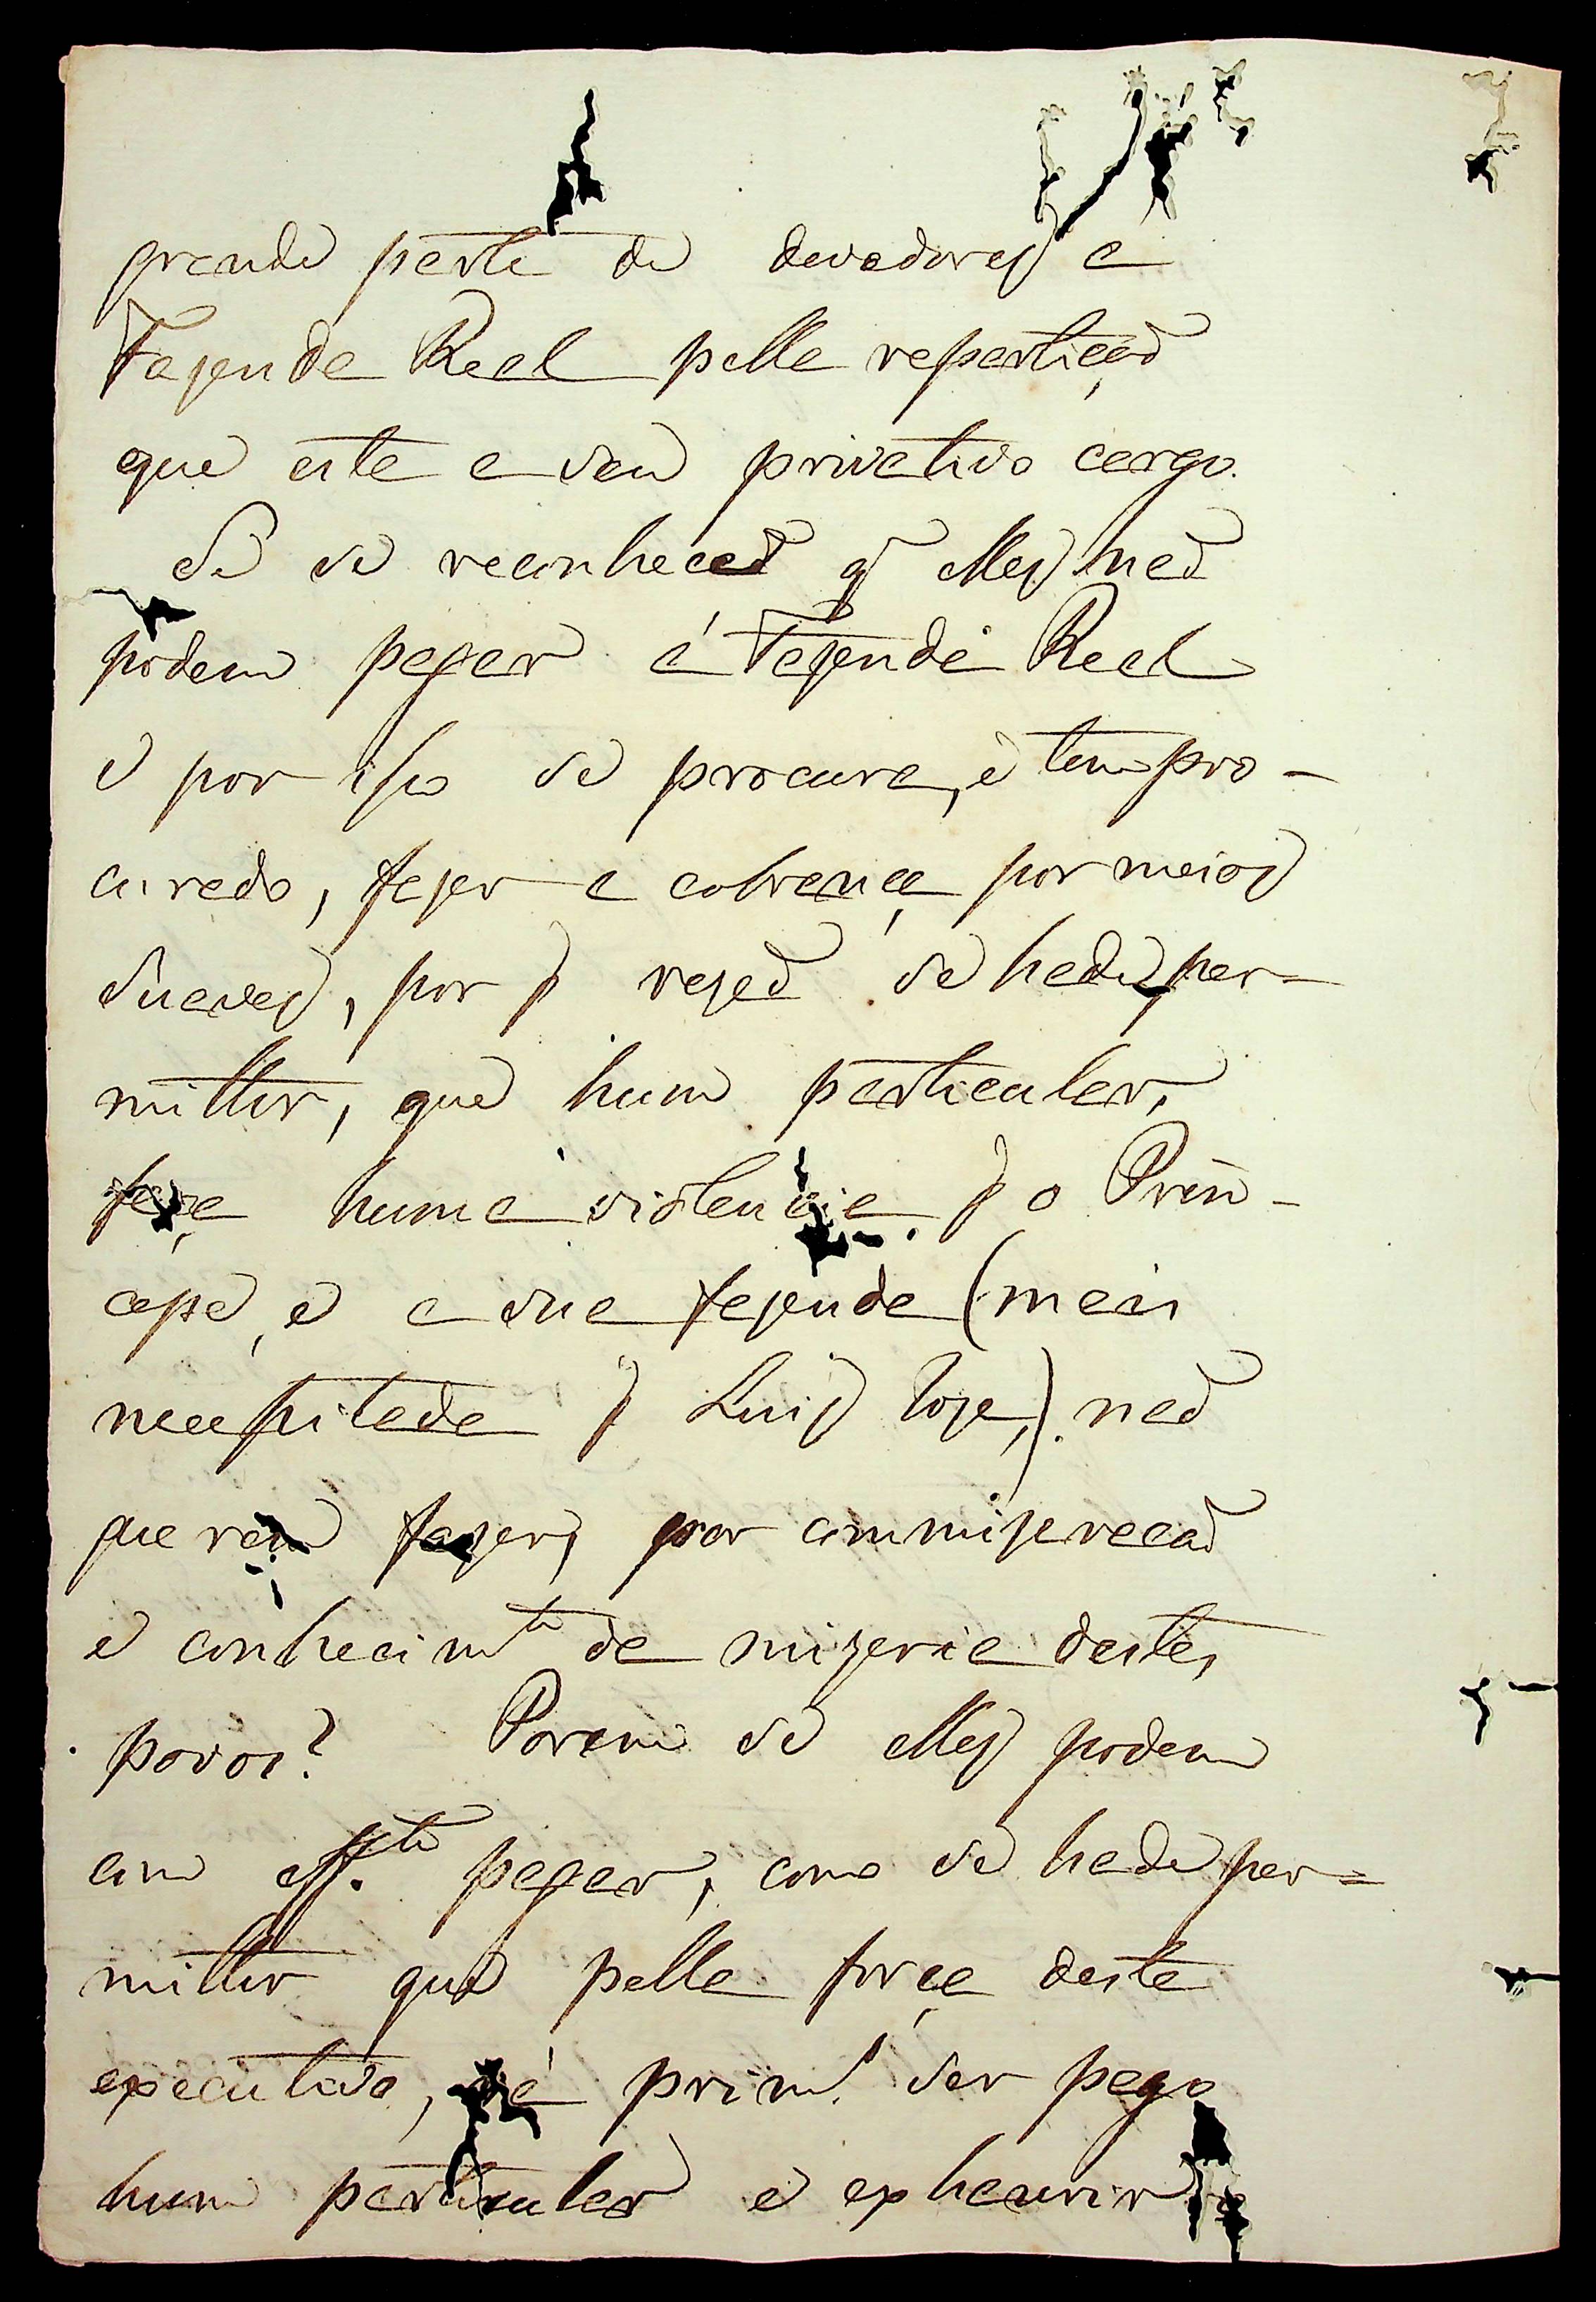 grande parte de devedores a
Fazenda Real pella repartiçaõ
que esta a seu privativo cargo.
Se se reconhece q̃ elles naõ
podem pagar á Fazenda Real
e por isso se procura, e tem pro-
curado, fazer a cobrança por meios
suaves, por q̃ rezaõ se hade per-
mittir, que hum particular,
faça huma violencia q̃ o Prin-
cepe, e a sua fazenda (mais
necessitada q̃ Luis Joze,) naõ
querem fazer, por commizeraçaõ
e conhecim.to da mizeria destes
povos? Porem se elles podem
com eff.to pagar, como se hade per=
mittir que pella força deste
executivo, vá prim.o ser pago
hum particular e exhaurir